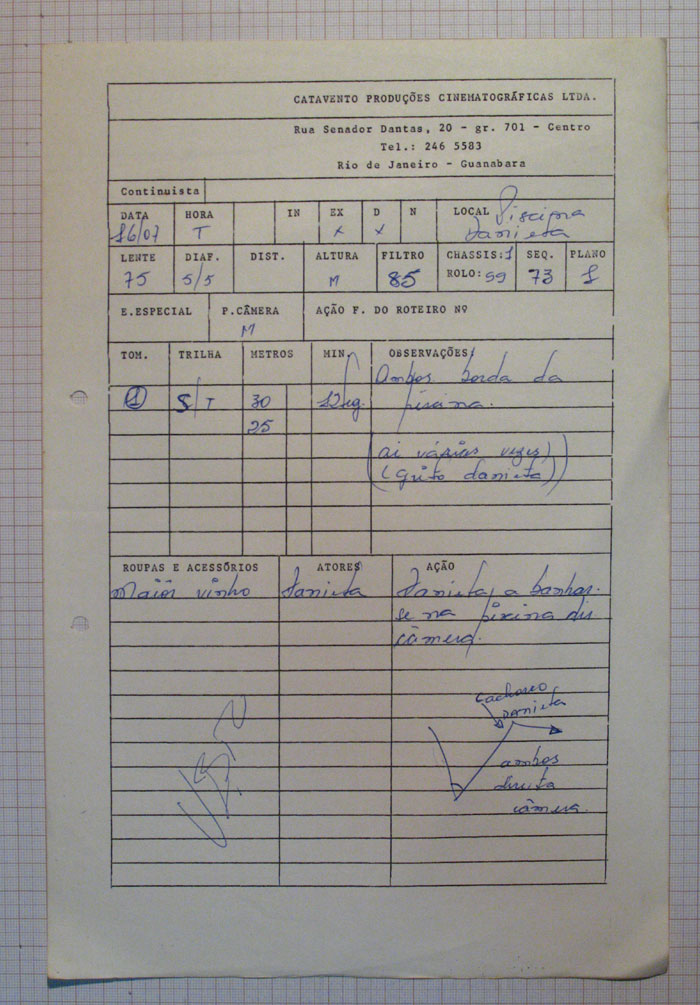 CATAVENTO PRODUÇÕES CINEMATOGRÁFICAS LTDA.
Rua Senador Dantas, 20 - gr. 701 - Centro
Tel.: 246 5583
Rio de Janeiro - Guanabara
Continuista
DATA HORA IN EX D N LOCAL Piscina
16/07 T x x Danieta
LENTE DIAF. DIST. ALTURA FILTRO CHASSIS:1 SEQ. PLANO
75 5/5 M 85 ROLO: 99 73 1
E.ESPECIAL P.CÂMERA AÇÃO F. DO ROTEIRO Nº
M
TOM. TRILHA METROS MIN. OBSERVAÇÕES
Ambos borda da
1 S/T 30 piscina.
25
(ai várias vezes)
(grito danieta)
ROUPAS E ACESSÓRIOS ATORES AÇÃO
Maiôr vinho Danieta Danieta a banhar-
se na piscina
câmera.
cachorro
Danieta
ambos
direita
câmera.